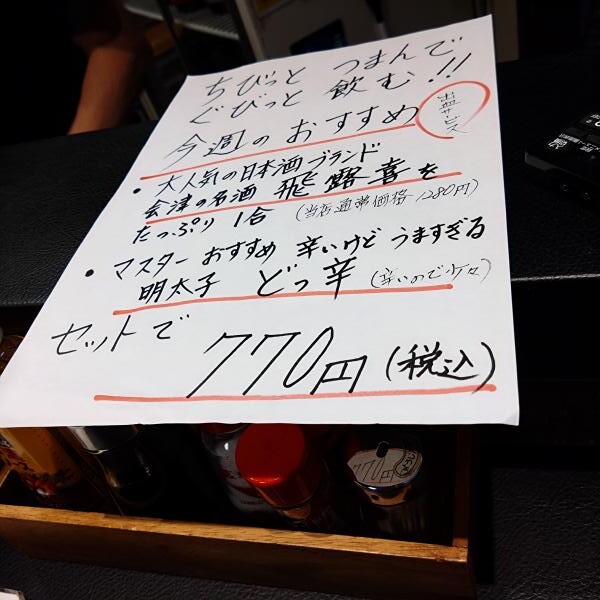 ちびっと つまんで
ぐびっと 飲む!!
今週の おすすめ
出血サービス
• 大人気の日本酒ブランド
会津の名酒 飛露喜を
たっぷり 1合 (当店通常価格 1280円)
• マスター おすすめ 辛いけど うますぎる
明太子 どっ辛 (辛いので少々)
セットで
770円(税込)
770円